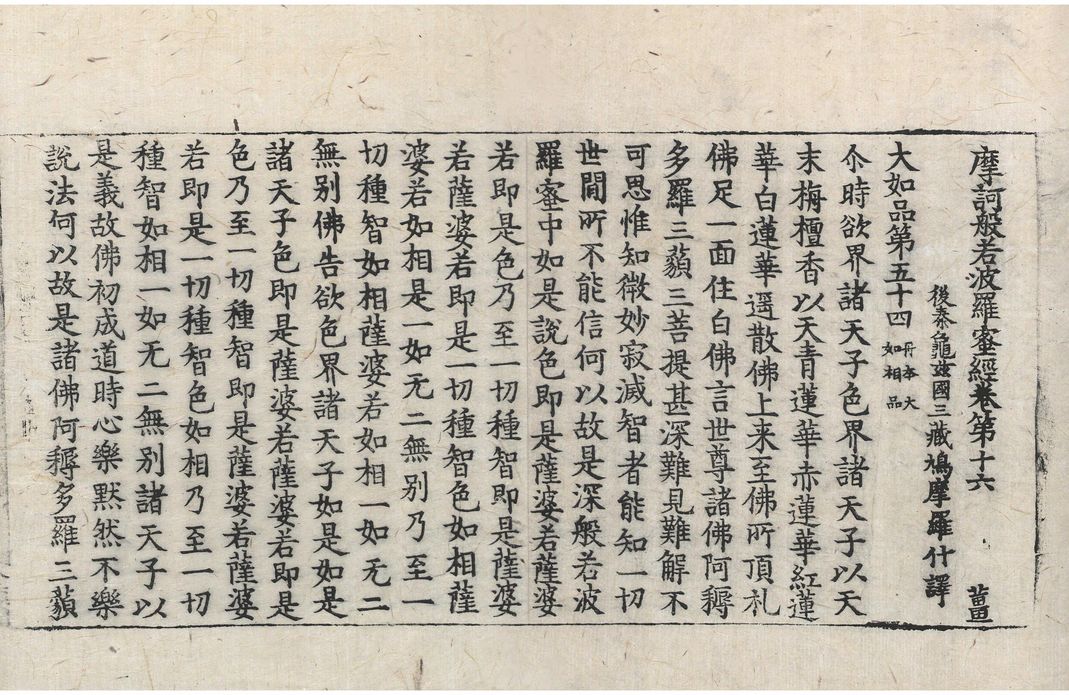 摩訶般若波羅蜜經卷第十六 薑
後秦龜茲國三藏鳩摩羅什譯
大如品第五十四 丹本大如相品
尒時欲界諸天子色界諸天子以天
末栴檀香以天青蓮華赤蓮華紅蓮
華白蓮華遥散佛上来至佛所頂礼
佛足一面住白佛言世尊諸佛阿耨
多羅三藐三菩提甚深難見難解不
可思惟知微妙寂滅智者能知一切
世閒所不能信何以故是深般若波
羅蜜中如是說色即是薩婆若薩婆
若即是色乃至一切種智即是薩婆
若薩婆若即是一切種智色如相薩
婆若如相是一如无二無別乃至一
切種智如相薩婆若如相一如无二
無别佛告欲色界諸天子如是如是
諸天子色即是薩婆若薩婆若即是
色乃至一切種智即是薩婆若薩婆
若即是一切種智色如相乃至一切
種智如相一如无二無別諸天子以
是義故佛初成道時心樂默然不樂
說法何以故是諸佛阿耨多羅三藐